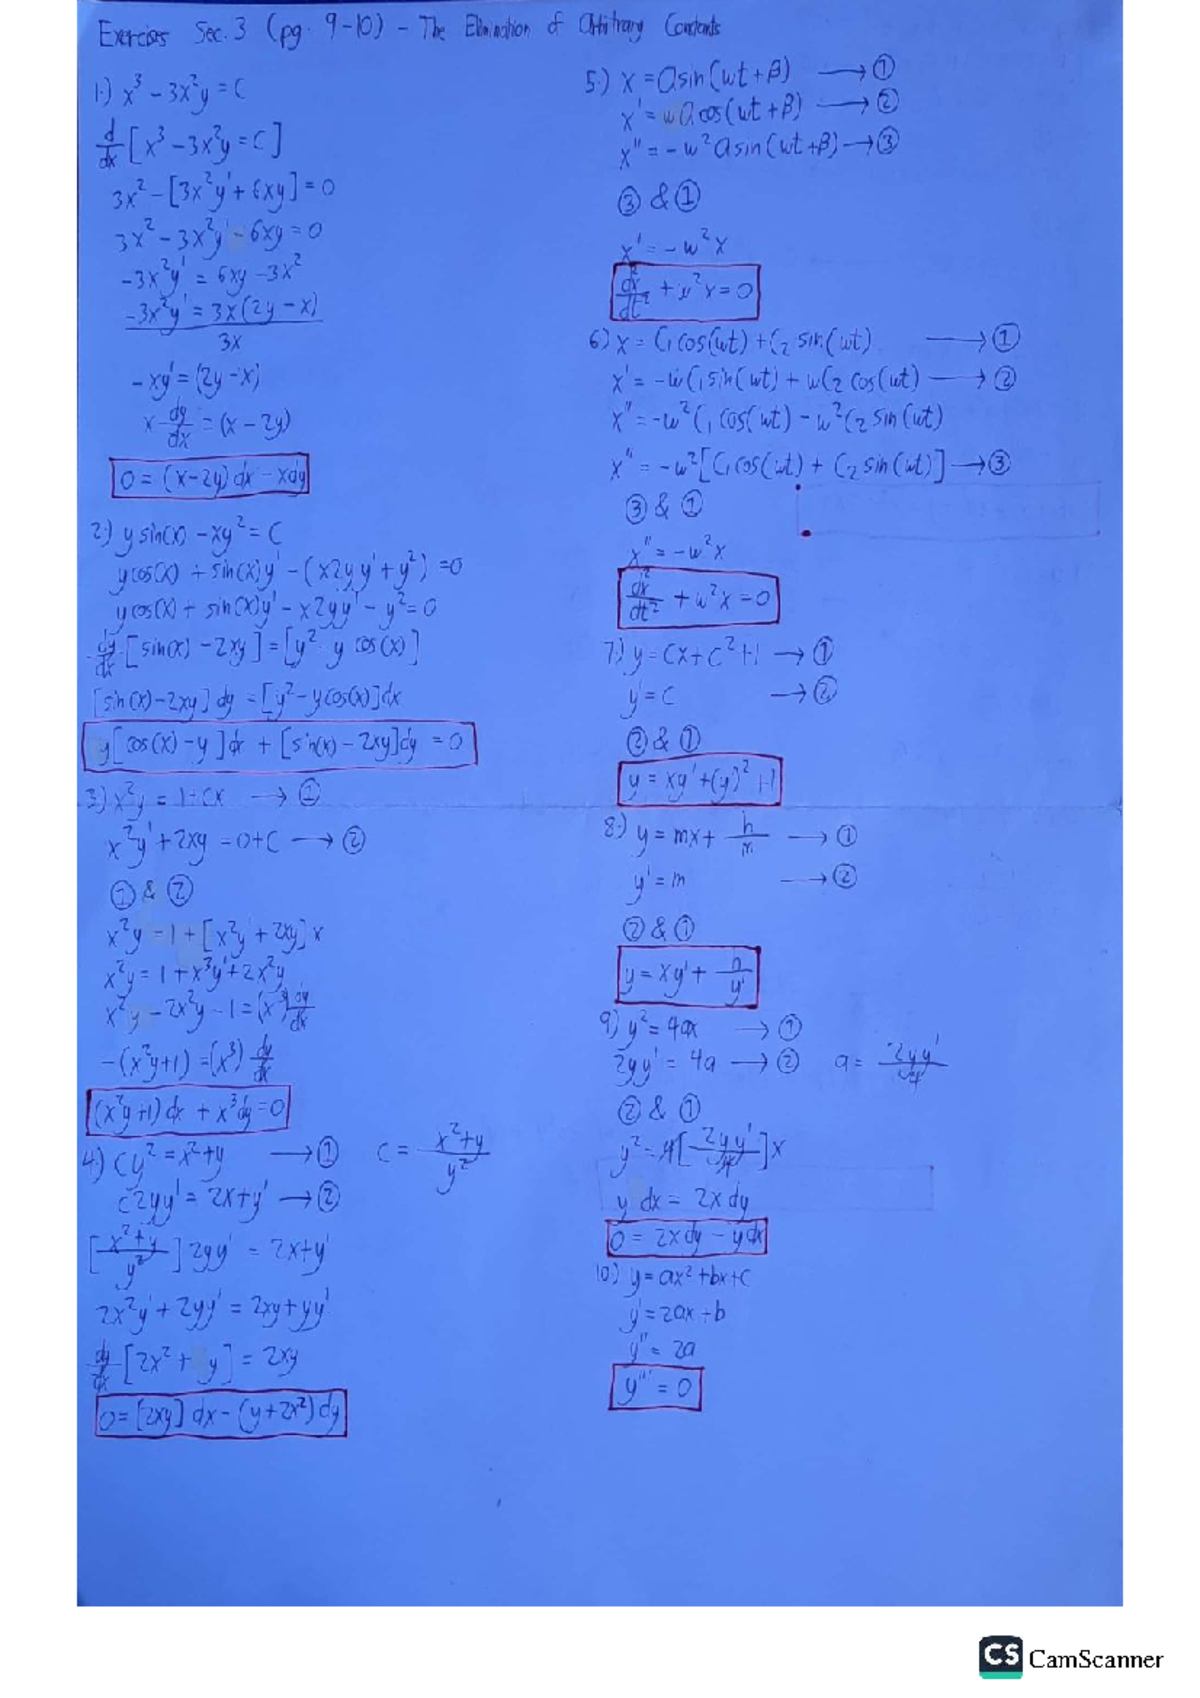 Exercises Sec. 3 (pg. 9-10) - The Elimination of Arbitrary Constants
1.) x³ - 3x²y = C
d/dx [x³ - 3x²y = C]
3x² - [3x²y' + 6xy] = 0
3x² - 3x²y' - 6xy = 0
-3x²y' = 6xy - 3x²
-3x²y' = 3x(2y - x)
3x
-xy' = (2y - x)
x dy/dx = (x - 2y)
0 = (x-2y) dx - xdy
2.) y sin(x) - xy² = C
ycos(x) + sin(x)y' - (x2yy' + y²) = 0
ycos(x) + sin(x)y' - x2yy' - y² = 0
dy/dx [sin(x) - 2xy] = [y² - y cos(x)]
[sin(x) - 2xy] dy = [y² - ycos(x)]dx
y[cos(x) - y]dx + [sin(x) - 2xy]dy = 0
3.) x²y = 1 + cx → ①
x²y' + 2xy = 0 + C → ②
① & ②
x²y = 1 + [x²y' + 2xy] x
x²y = 1 + x³y' + 2x²y
x²y - 2x²y - 1 = (x³) dy/dx
-(x²y+1) = (x³) dy/dx
(x²y+1) dx + x³dy = 0
4.) Cy² = x² + y → ① C = x²+y / y²
c2yy' = 2x + y' → ②
[x²+y / y²] 2yy' = 2x + y'
2x²y' + 2yy' = 2xy + yy'
dy/dx [2x² + y] = 2xy
0 = [2xy] dx - (y + 2x²) dy
5.) x = a sin(wt + β) → ①
x' = wa cos(wt + β) → ②
x" = -w² a sin(wt + β) → ③
③ & ①
x' = -w²x
d²x/dt² + w²x = 0
6.) x = C₁cos(wt) + C₂ sin(wt) → ①
x' = -wC₁sin(wt) + wC₂ cos(wt) → ②
x" = -w²C₁ cos(wt) - w²C₂ sin(wt)
x" = -w²[C₁cos(wt) + C₂ sin(wt)] → ③
③ & ①
x" = -w²x
d²x/dt² + w²x = 0
7.) y = Cx + C² + 1 → ①
y' = C → ②
② & ①
y = xy' + (y')² + 1
8.) y = mx + h/m → ①
y' = m → ②
② & ①
y = xy' + h/y'
9.) y² = 4ax → ①
2yy' = 4a → ② a = 2yy'/4
② & ①
y² = 4[2yy'/4]x
y dx = 2x dy
0 = 2x dy - y dx
10.) y = ax² + bx + C
y' = 2ax + b
y" = 2a
y''' = 0
CS CamScanner